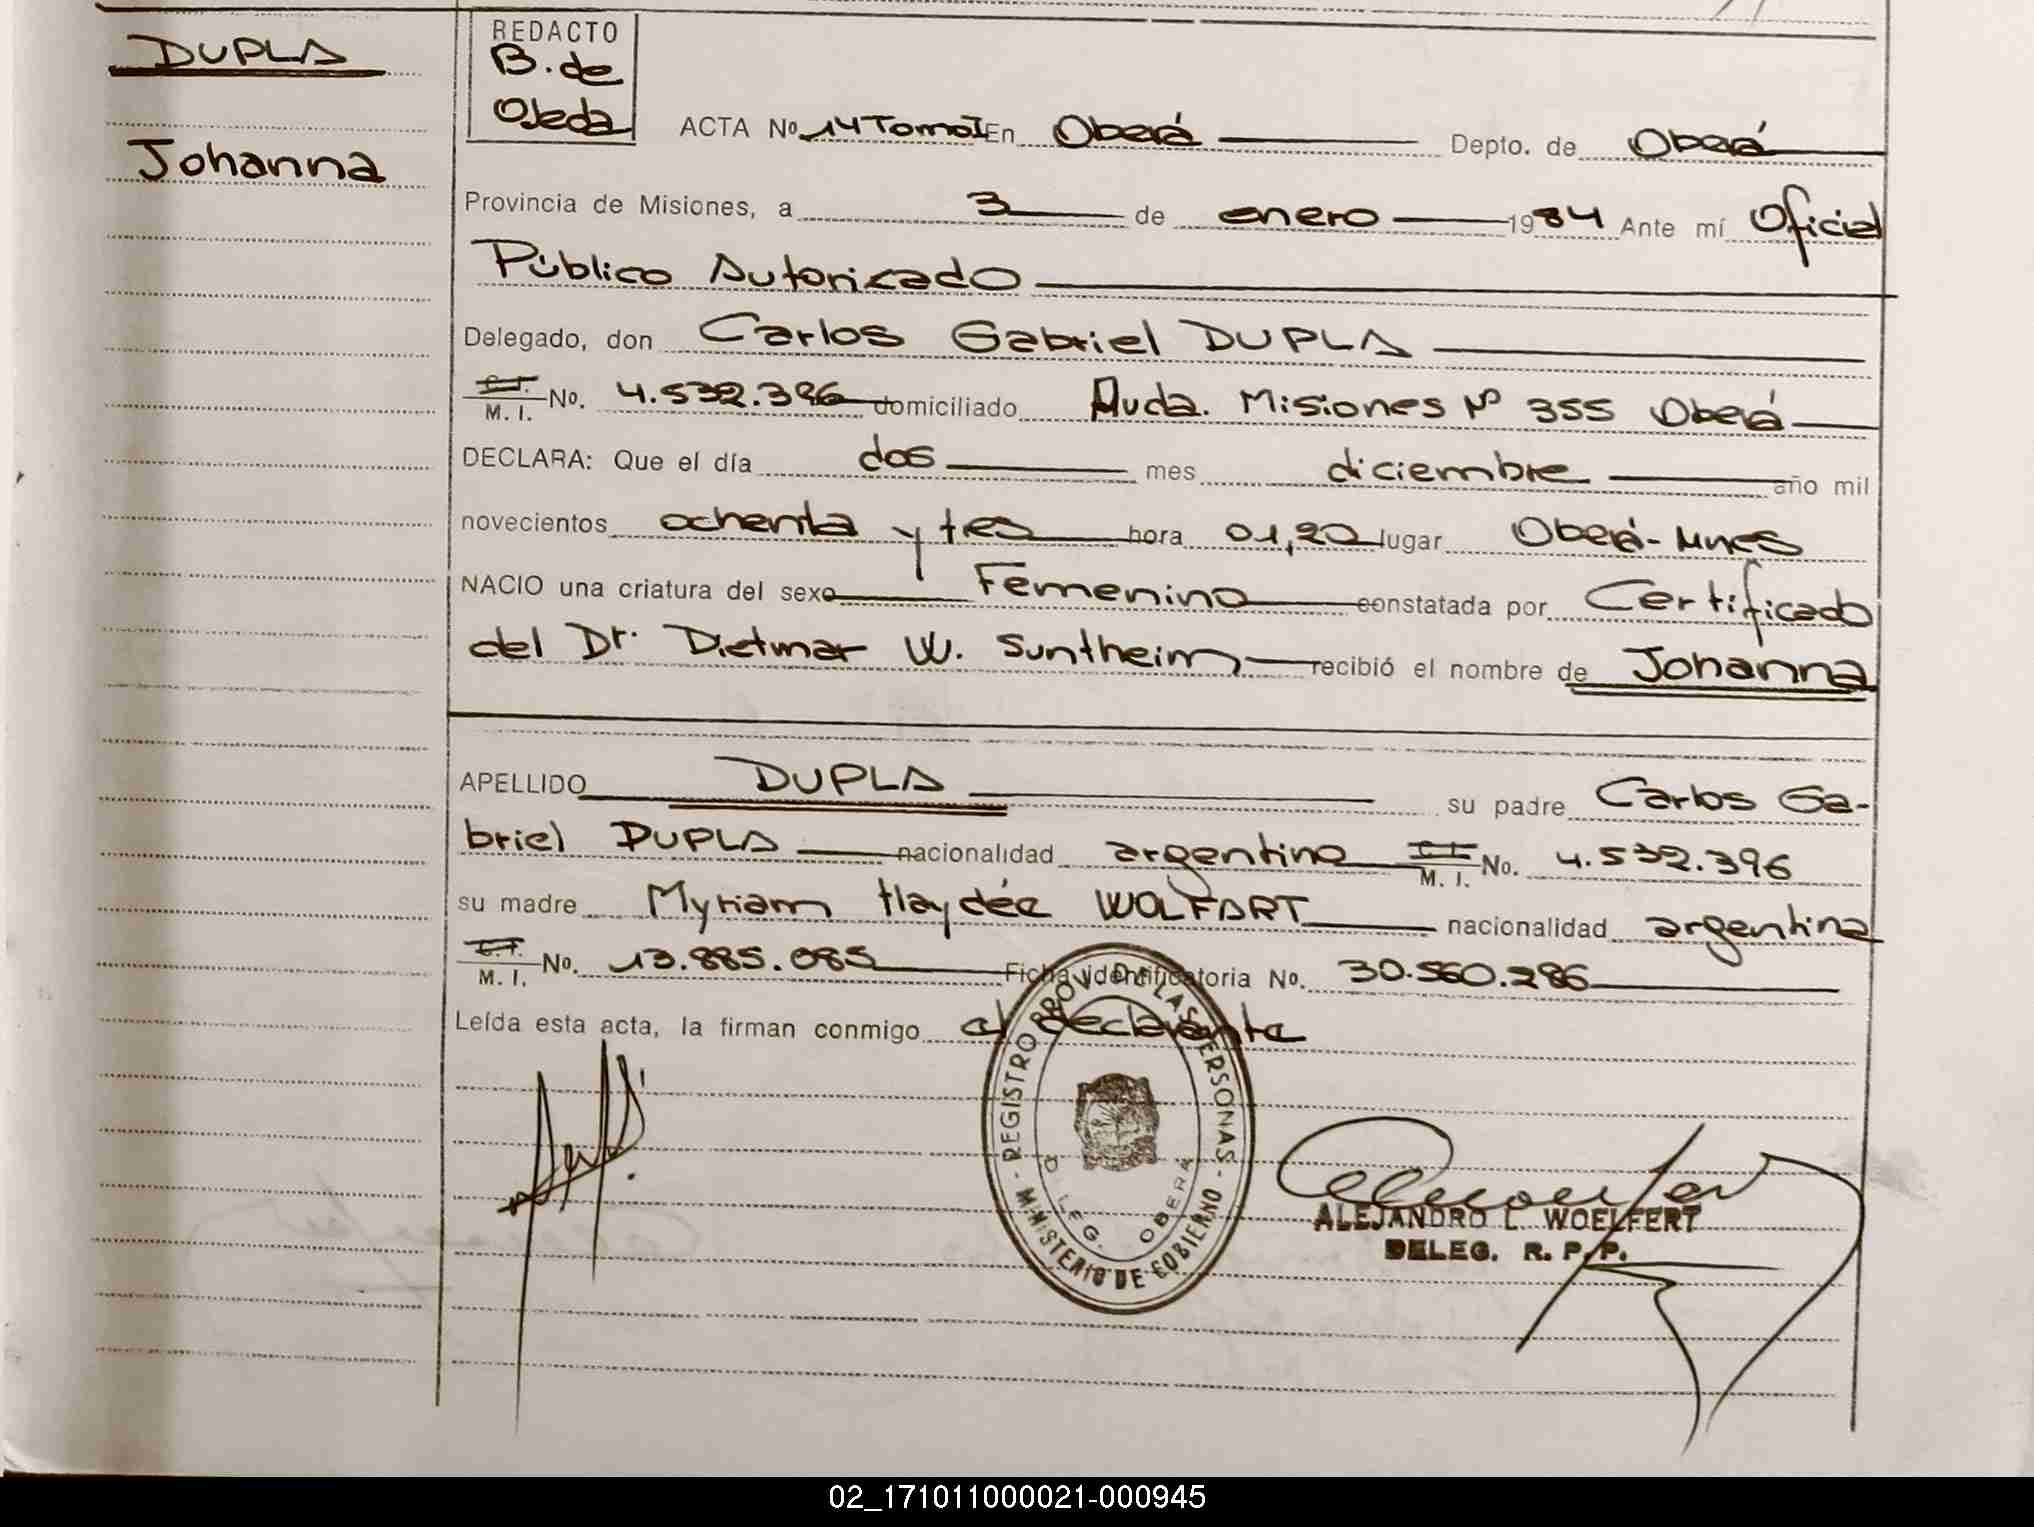 DUPLA
Johanna
REDACTO
B. de
Ojeda
ACTA No. 14 Tomo I En Oberá Depto. de Oberá
Provincia de Misiones, a 3 de enero 1984 Ante mí Oficial
Público Autorizado
Delegado, don Carlos Gabriel DUPLA
C.I. M. I. No. 4.532.396 domiciliado Avda. Misiones Nº 355 Oberá
DECLARA: Que el día dos mes diciembre año mil
novecientos ochenta y tres hora 01,20 lugar Oberá - Mnes
NACIO una criatura del sexo Femenino constatada por Certificado
del Dr. Dietmar W. Suntheim recibió el nombre de Johanna
APELLIDO DUPLA su padre Carlos Ga-
briel DUPLA nacionalidad argentino C.I. M. I. No. 4.532.396
su madre Myriam Haydée WOLFART nacionalidad argentina
C.I. M. I. No. 13.885.085 Ficha identificatoria No. 30.560.286
Leída esta acta, la firman conmigo el declarante
- REGISTRO PROV. DE LAS PERSONAS -
MINISTERIO DE GOBIERNO
DELEG. OBERÁ
ALEJANDRO L. WOELFERT
DELEG. R. P. P.
02_171011000021-000945